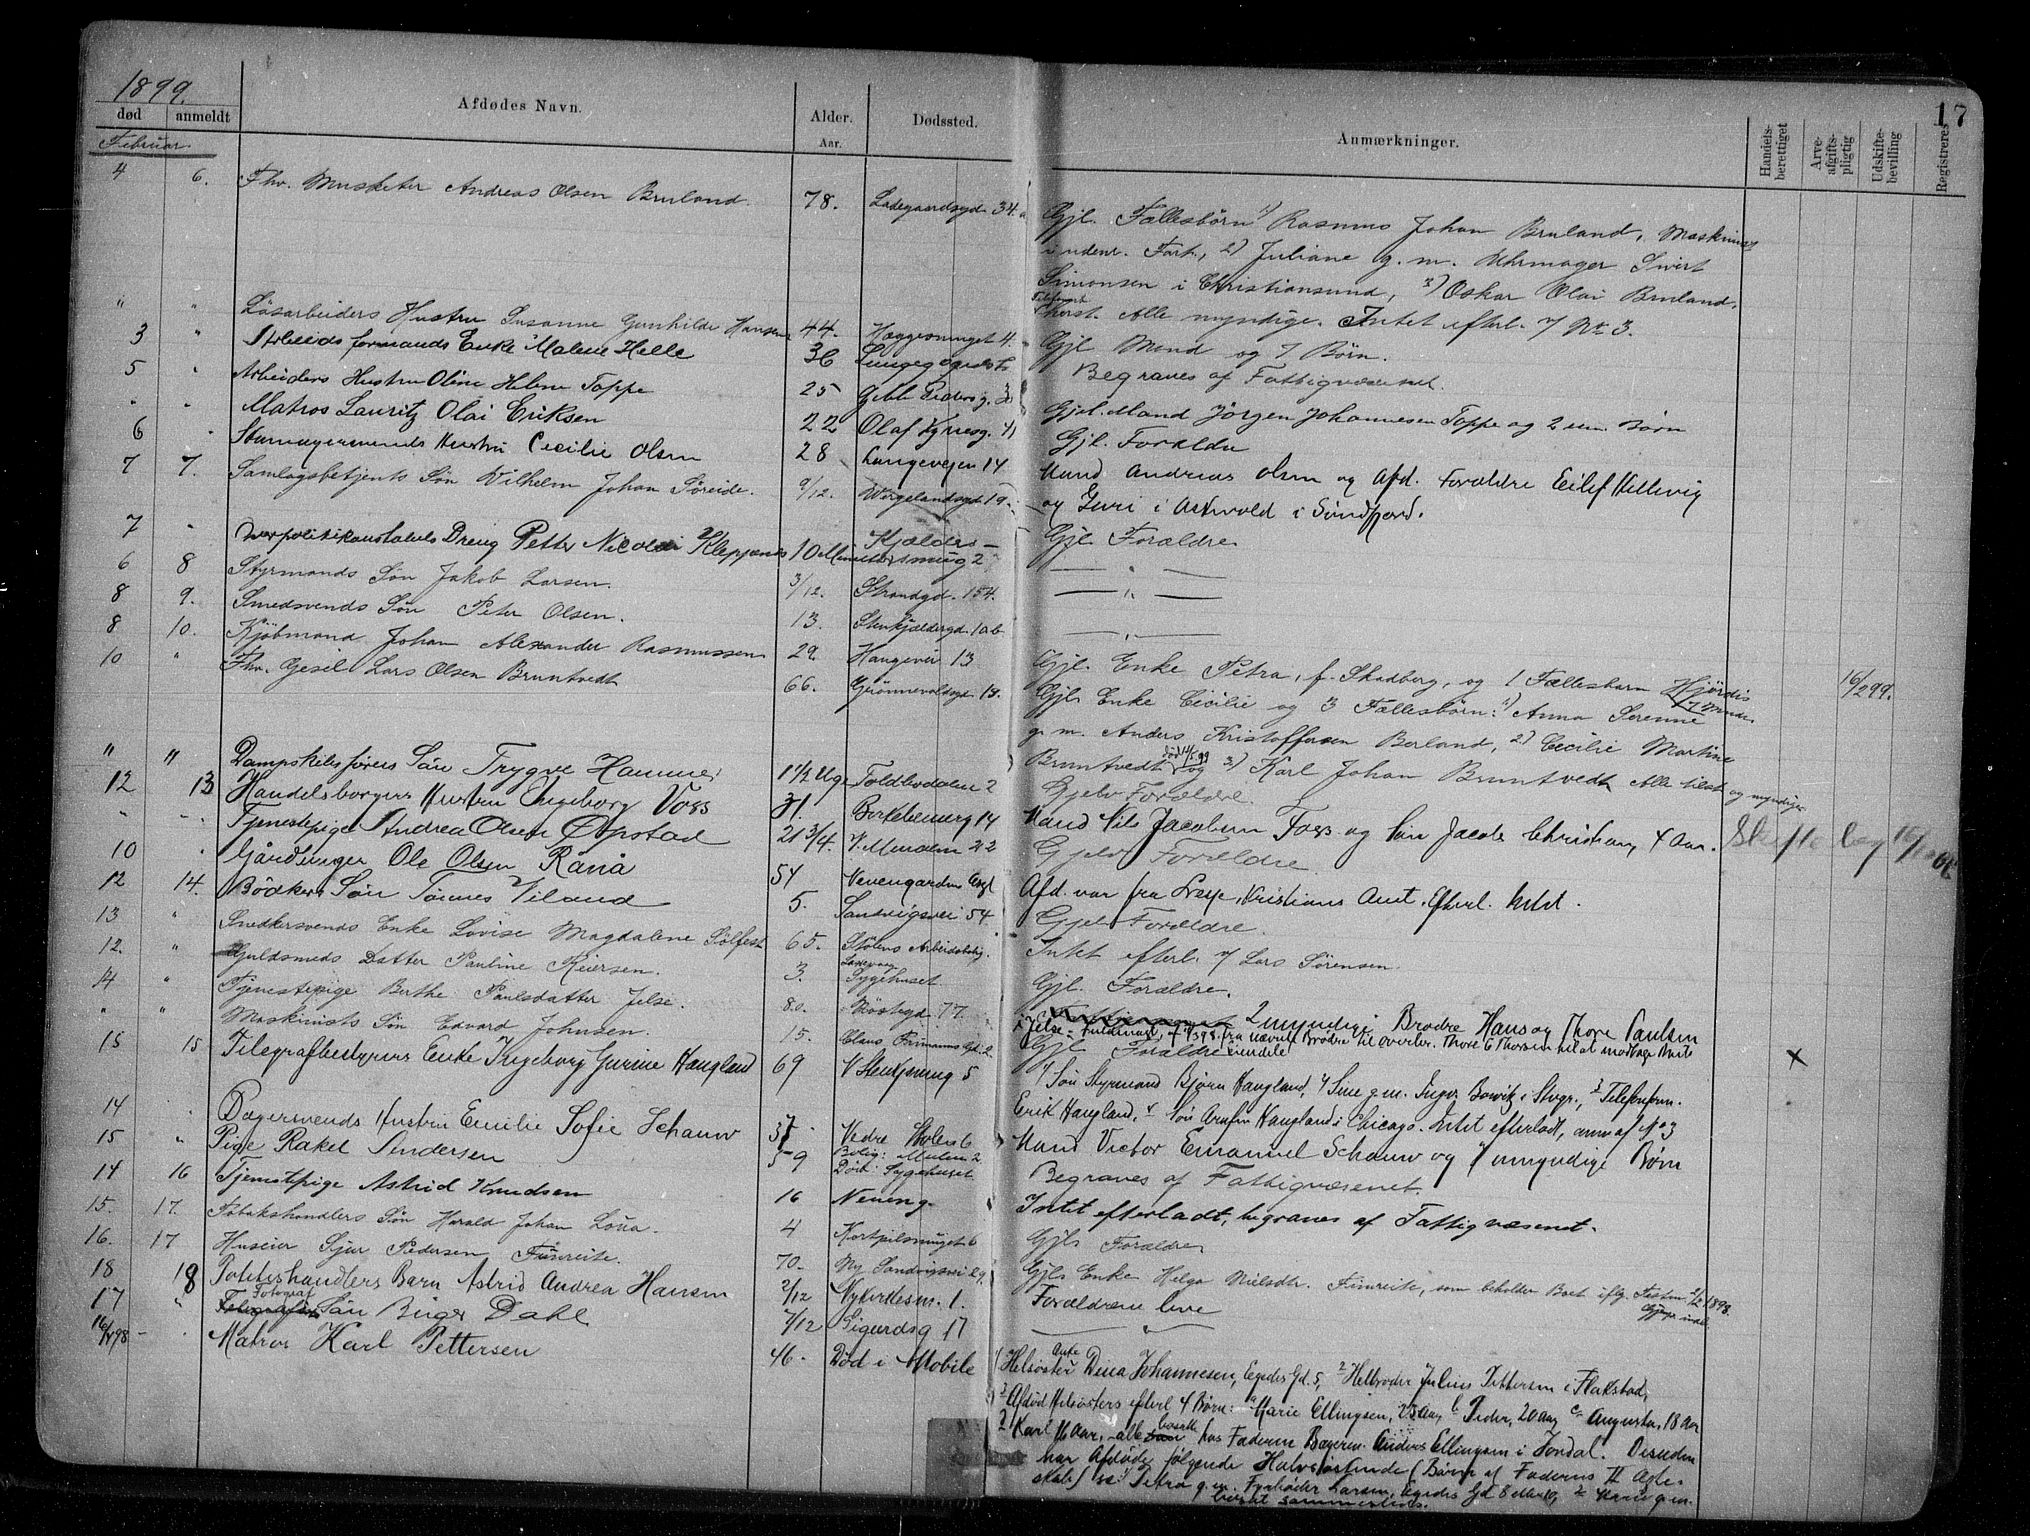 1899.
17
død anmeldt Afdødes Navn. Alder. Aar. Dødssted. Anmærkninger. Handels-berettiget Arve-afgifts-pligtig Udskifte-bevilling Registreres
Februar
4 6. Fhv. Musketer Andreas Olsen Bruland. 78. Ladegaardsgd. 34.
Gjl. Fællesbørn 1) Rasmus Johan Bruland, Maskinist
i udenr. Fart, 2) Juliane g. m. Uhrmager Sivert
Simonsen i Christiansund, 3) Oskar Olai Bruland,
Alle myndige. Intet efterl. 7 No 3.
" " Løsarbeiders Hustru Susanne Gunhilde Hansen 44. Heggesmuget 4. Gjl Mand og 7 Børn.
3 " Arbeidsformands Enke Malene Helle 36 Begraves af Fattigvæsenet.
5 " Arbeiders Hustru Oline Helene Toppe 25 Gjel. Mand Jörgen Johannesen Toppe og 2 um. Børn
" " Matros Lauritz Olai Eriksen 22 Olaf Kyrresg. 41 Gjl. Forældre
6 " Hustru Cecilie Olsen 28 Langevejen 14 Mand Andreas Olsen og Afd. Forældre Eilef Hellevig
og Guri i Askvold i Søndfjord.
7 7. Samlagsbetjents Søn Vilhelm Johan Søreide. 9/12. Wergelandsgd. 19. Gjl. Forældre
7 " Overpolitikonstabels Dreng Petter Nicolai Kleppenes 10 Minutter Kjelders-smug 2 — " —
6 8 Styrmands Søn Jakob Larsen. 3/12. Strandgd. 154. — " —
8 9. Smedsvends Søn Peter Olsen. 13. Stenkjældergd. 10b — " —
8 10. Kjøbmand Johan Alexander Rasmussen 29. Haugevei 13 Gjl. Enke Petra, f. Skadberg, og 1 Fællesbarn Hjørdis 16/2 99.
10 " Fhv. Gesel Lars Olsen Bruntvedt 66. Grønnevoldsgd. 13. Gjl. Enke Cicilie og 3 Fællesbørn: 1) Anna Serenne
g. m. Anders Kristoffersen Berland, 2) Cecilie Martine
Bruntvedt og 3) Karl Johan Bruntvedt Alle tilst. og myndige.
" " Dampskibsførers Søn Trygve Hammer 1 1/2 Uge Toldbodalm 2 Gjelv Forældre.
12 13 Handelsborgers Hustru Ingeborg Voss 31. Birkebeinerg 14 Mand Nils Jacobsen Foss og Søn Jacob Christian, 4 Aar. Skifte
" " Tjenestepige Andrea Olsen Øpstad 21 3/4. V. Muralm. 22 Gjelv Forældre
10 " Gårdbruger Ole Olsen Rånå 54 Afd. var fra Lesje, Kristians Amt. Efterl. Intet.
12 14. Bödkers Søn Tønnes Viland 5. Sandvigsvei 54. Gjelv Forældre.
13 " Snedkersvends Enke Lovise Magdalene Sølfest 65. Stølens Arbeiderbolig. Intet efterl. 7 Lars Sørensen.
12. " Guldsmeds Datter Pauline Reiersen. 3. Sygehuset Gjl. Forældre.
14 " Tjenestepige Berthe Paulsdatter Jelse. 80. Nöstegd. 77. 2 myndige Brødre Hans og Thore Paulsen
" " Maskinists Søn Edvard Johnsen. 15. Claus Frimanns Gd. 2 Gjl Forældre
15 15 Telegrafbestyrers Enke Ingeborg Gurine Haugland 69 V Stentsmug 5 1 Søn Styrmand Bjørn Haugland, ×
Erik Haugland, 4 Søn Haugland i Chicago. Intet efterladt, anm af No 3
14 " Dagersvends Hustru Emilie Sofie Schauw 37 Vedre Stølen 6 Mand Victor Emanuel Schauw og 7 umyndige Børn
15 " Pige Rakel Andersen 59 Bolig: Muralm 2. Død: Sygehuset Begraves af Fattigvæsenet.
14 16 Tjenestepige Astrid Knudsen 16 Neveng. Intet efterladt, begraves af Fattigvæsenet.
15. 17. Tobakshandlers Søn Harald Johan Loua. 4 Kortpilsmuget 6 Gjl. Forældre
16. 17 Huseier Sjur Pedersen Finreite. 70. Ny Sandvigsvei 29. Gjl. Enke Helga Nielsdtr. Finreite, som beholder Boet iflg. Testm. 2/2 1898.
18 18 Pottteshandlers Barn Astrid Andrea Hansen 2/12 Nykirkesm. 1. Forældrene leve
17 " Fotograf Søn Birger Dahl 7/12 Sigurdsg 17 — " —
16/4 98 - " Matros Karl Pettersen 46. Død i Mobile 1 Helsøster Enke Dina Johannesen, Egedes Gd. 5, 2 Helbroder Julius Pettersen i Flakstad,
3 Afdød Helsøsters efterl 4 Børn: a Marie Ellingsen, 25 Aar, b Peder, 20 Aar, c Augusta, 18 Aar
Karl 16 Aar, alle hos Faderen Anders Ellingsen i Jondal. Desuden
har Afdøde følgende Halvsøskende (Børn af Faderens II Ægte-
skab) 1 Petra g. m. Fyrbøder Larsen, Egedes Gd 8 eller 10, 2 Marie g. m.